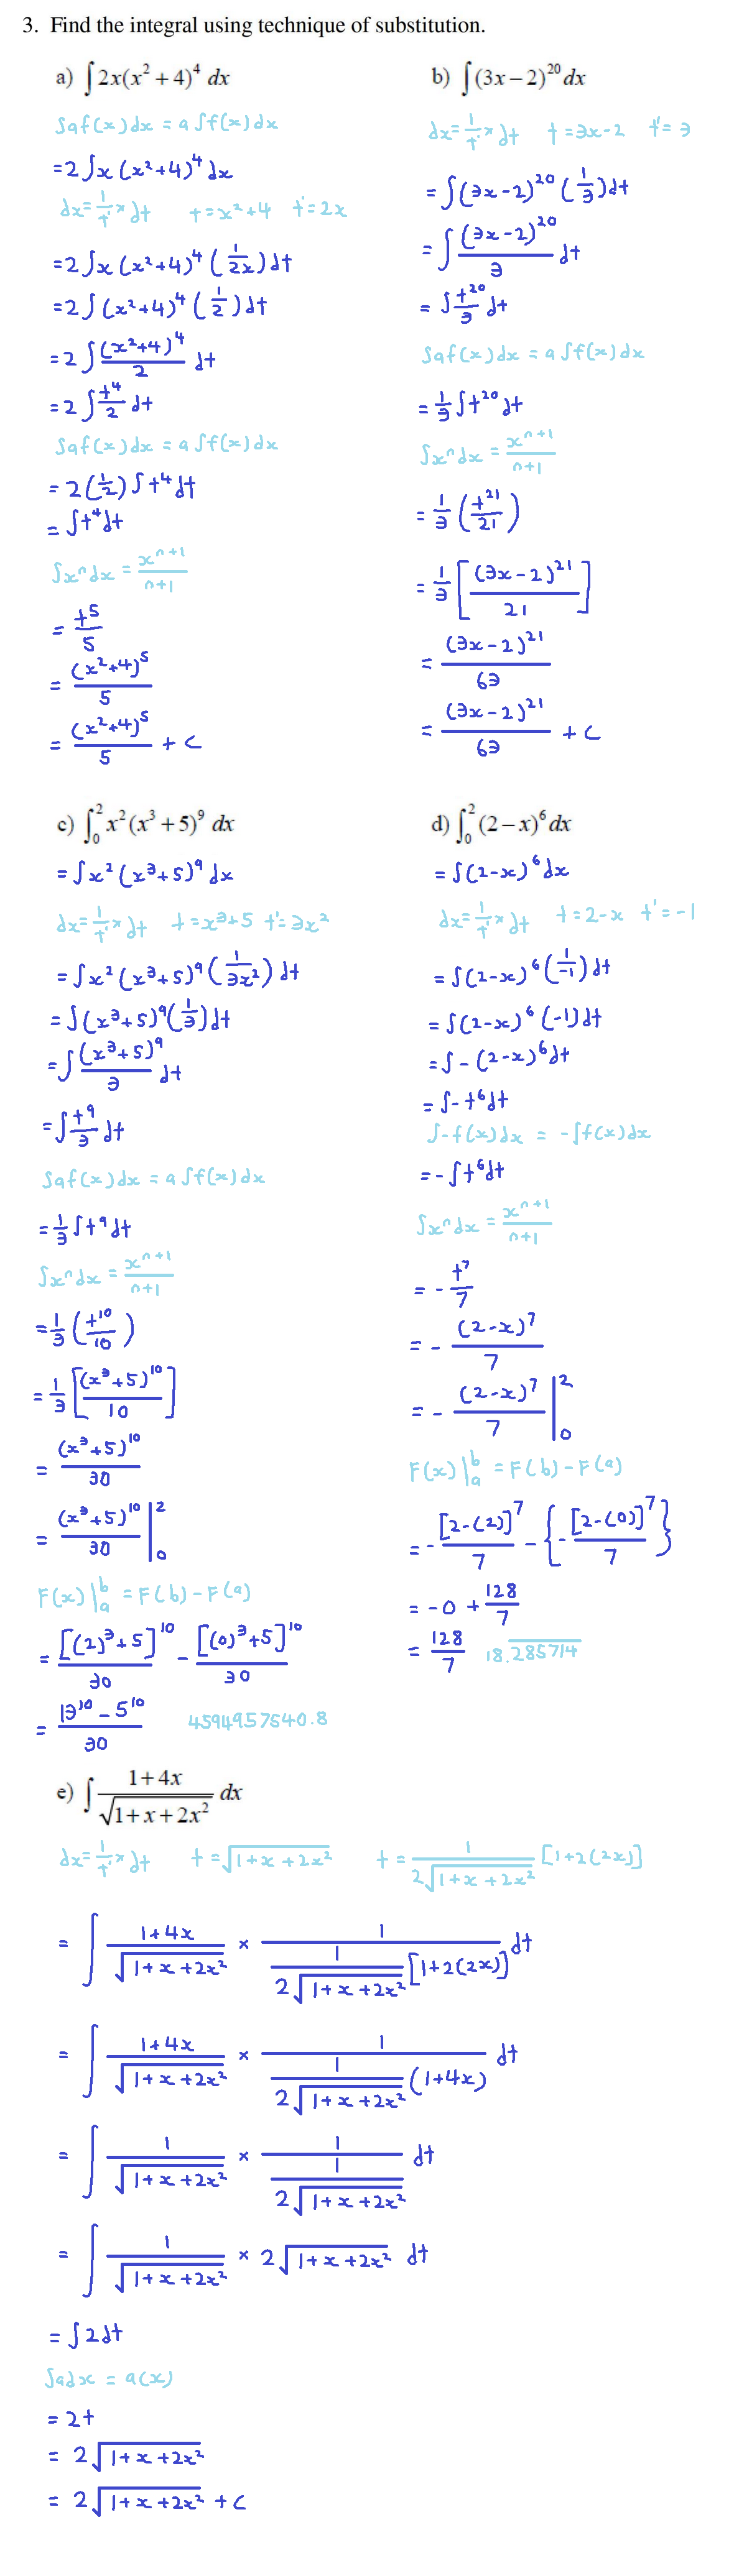 3. Find the integral using technique of substitution.
a) ∫2x(x² + 4)⁴ dx
∫af(x)dx = a∫f(x)dx
= 2∫x(x²+4)⁴dx
dx = 1/t' × dt  t = x²+4  t' = 2x
= 2∫x(x²+4)⁴(1/2x)dt
= 2∫(x²+4)⁴(1/2)dt
= 2∫(x²+4)⁴/2 dt
= 2∫t⁴/2 dt
∫af(x)dx = a∫f(x)dx
= 2(1/2)∫t⁴dt
= ∫t⁴dt
∫xⁿdx = xⁿ⁺¹/n+1
= t⁵/5
= (x²+4)⁵/5
= (x²+4)⁵/5 + c
b) ∫(3x − 2)²⁰ dx
dx = 1/t' × dt  t = 3x-2  t' = 3
= ∫(3x-2)²⁰(1/3)dt
= ∫(3x-2)²⁰/3 dt
= ∫t²⁰/3 dt
∫af(x)dx = a∫f(x)dx
= 1/3∫t²⁰dt
∫xⁿdx = xⁿ⁺¹/n+1
= 1/3(t²¹/21)
= 1/3[(3x-2)²¹/21]
= (3x-2)²¹/63
= (3x-2)²¹/63 + c
c) ∫₀² x²(x³ + 5)⁹ dx
= ∫x²(x³+5)⁹dx
dx = 1/t' × dt  t = x³+5  t' = 3x²
= ∫x²(x³+5)⁹(1/3x²)dt
= ∫(x³+5)⁹(1/3)dt
= ∫(x³+5)⁹/3 dt
= ∫t⁹/3 dt
∫af(x)dx = a∫f(x)dx
= 1/3∫t⁹dt
∫xⁿdx = xⁿ⁺¹/n+1
= 1/3(t¹⁰/10)
= 1/3[(x³+5)¹⁰/10]
= (x³+5)¹⁰/30
= (x³+5)¹⁰/30 |₀²
F(x)|ₐᵇ = F(b)-F(a)
= [(2)³+5]¹⁰/30 - [(0)³+5]¹⁰/30
= 13¹⁰-5¹⁰/30  4594957640.8
d) ∫₀² (2 − x)⁶ dx
= ∫(2-x)⁶dx
dx = 1/t' × dt  t = 2-x  t' = -1
= ∫(2-x)⁶(1/-1)dt
= ∫(2-x)⁶(-1)dt
= ∫-(2-x)⁶dt
= ∫-t⁶dt
∫-f(x)dx = -∫f(x)dx
= -∫t⁶dt
∫xⁿdx = xⁿ⁺¹/n+1
= -t⁷/7
= -(2-x)⁷/7
= -(2-x)⁷/7 |₀²
F(x)|ₐᵇ = F(b)-F(a)
= -[2-(2)]⁷/7 - {-[2-(0)]⁷/7}
= -0 + 128/7
= 128/7  18.2̅8̅5̅7̅1̅4̅
e) ∫ 1+4x/√(1+x+2x²) dx
dx = 1/t' × dt  t = √(1+x+2x²)  t = 1/2√(1+x+2x²) [1+2(2x)]
= ∫ 1+4x/√(1+x+2x²) × 1/(1/2√(1+x+2x²) [1+2(2x)]) dt
= ∫ 1+4x/√(1+x+2x²) × 1/(1/2√(1+x+2x²) (1+4x)) dt
= ∫ 1/√(1+x+2x²) × 1/(1/2√(1+x+2x²)) dt
= ∫ 1/√(1+x+2x²) × 2√(1+x+2x²) dt
= ∫2dt
∫adx = a(x)
= 2t
= 2√(1+x+2x²)
= 2√(1+x+2x²) + c